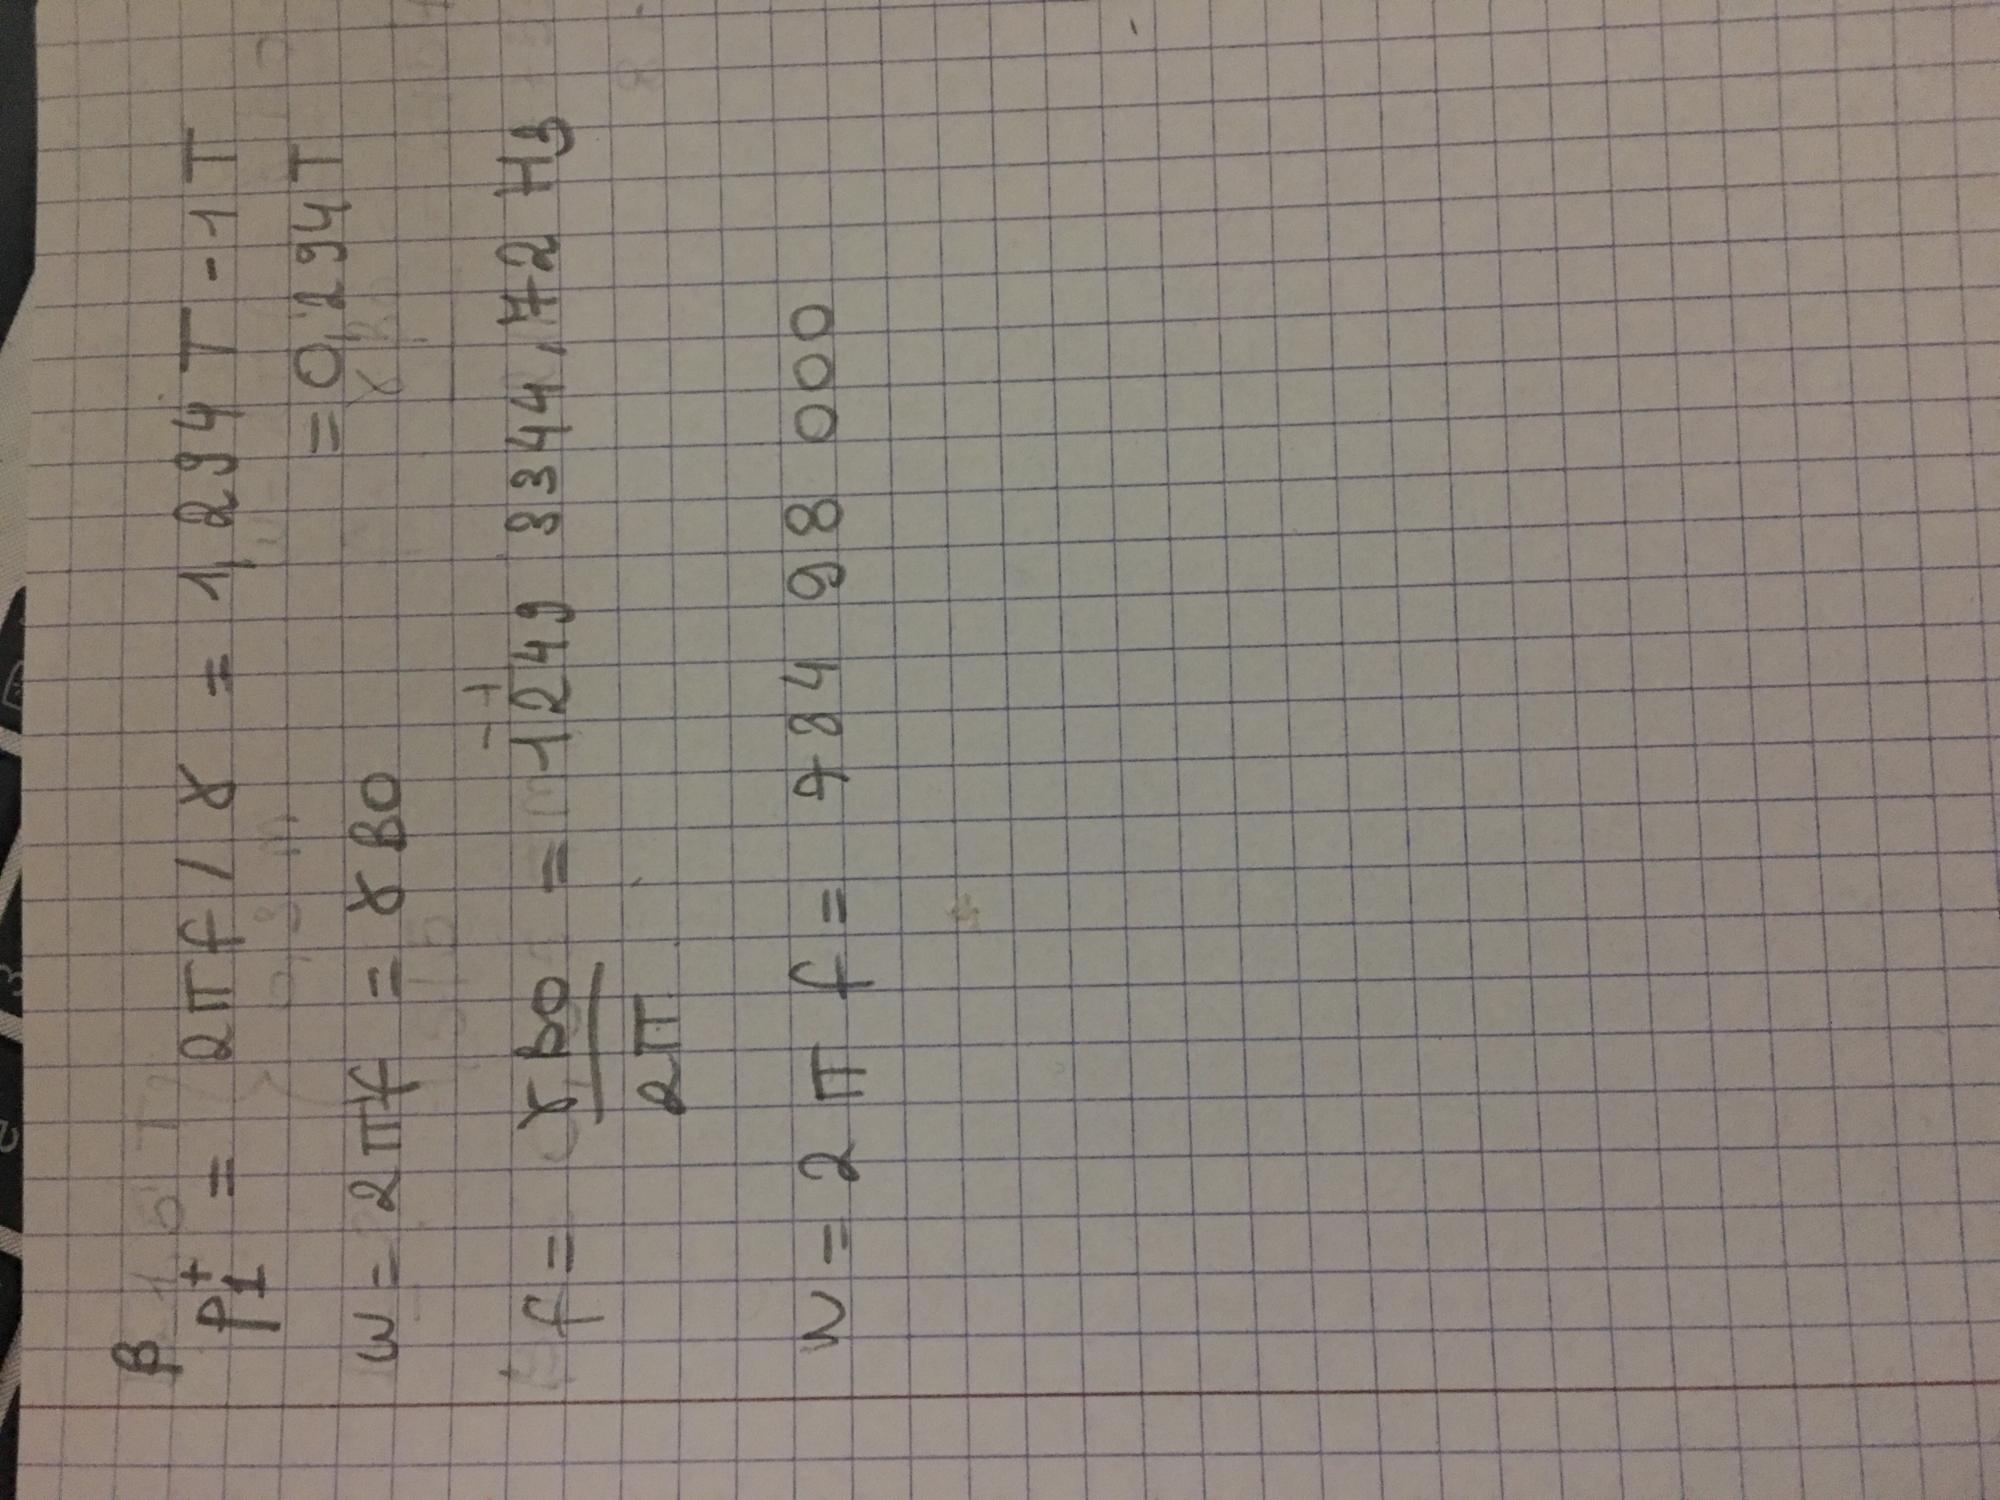 β
P₁⁺ = 2πf / γ = 1,294 T - 1 T
= 0,294 T
w = 2πf = γ B0
f = γ B0 / 2π = 1249 3344,72 Hz
w = 2 π f = 784 98 000